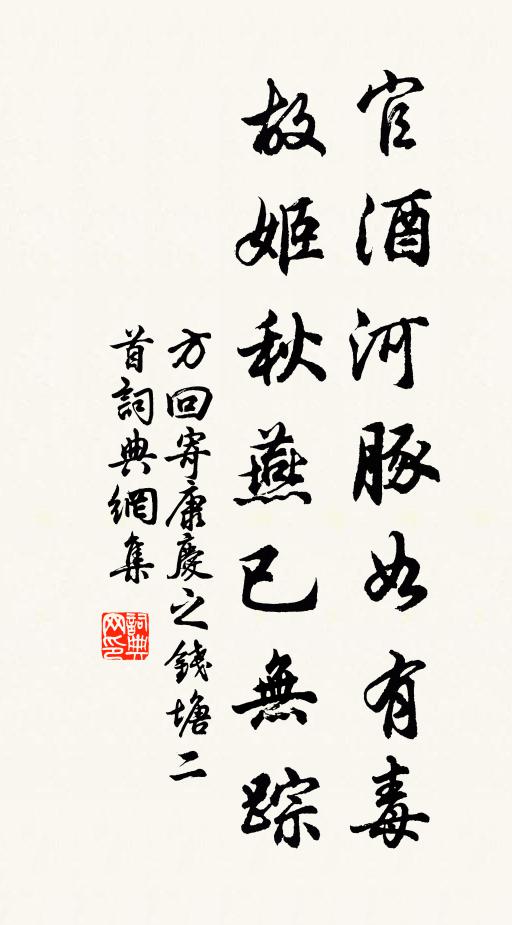 官酒河豚如有毒
故姬秋燕已無踪
方回寄康慶之錢塘二
首詞典網集
詞典
网印